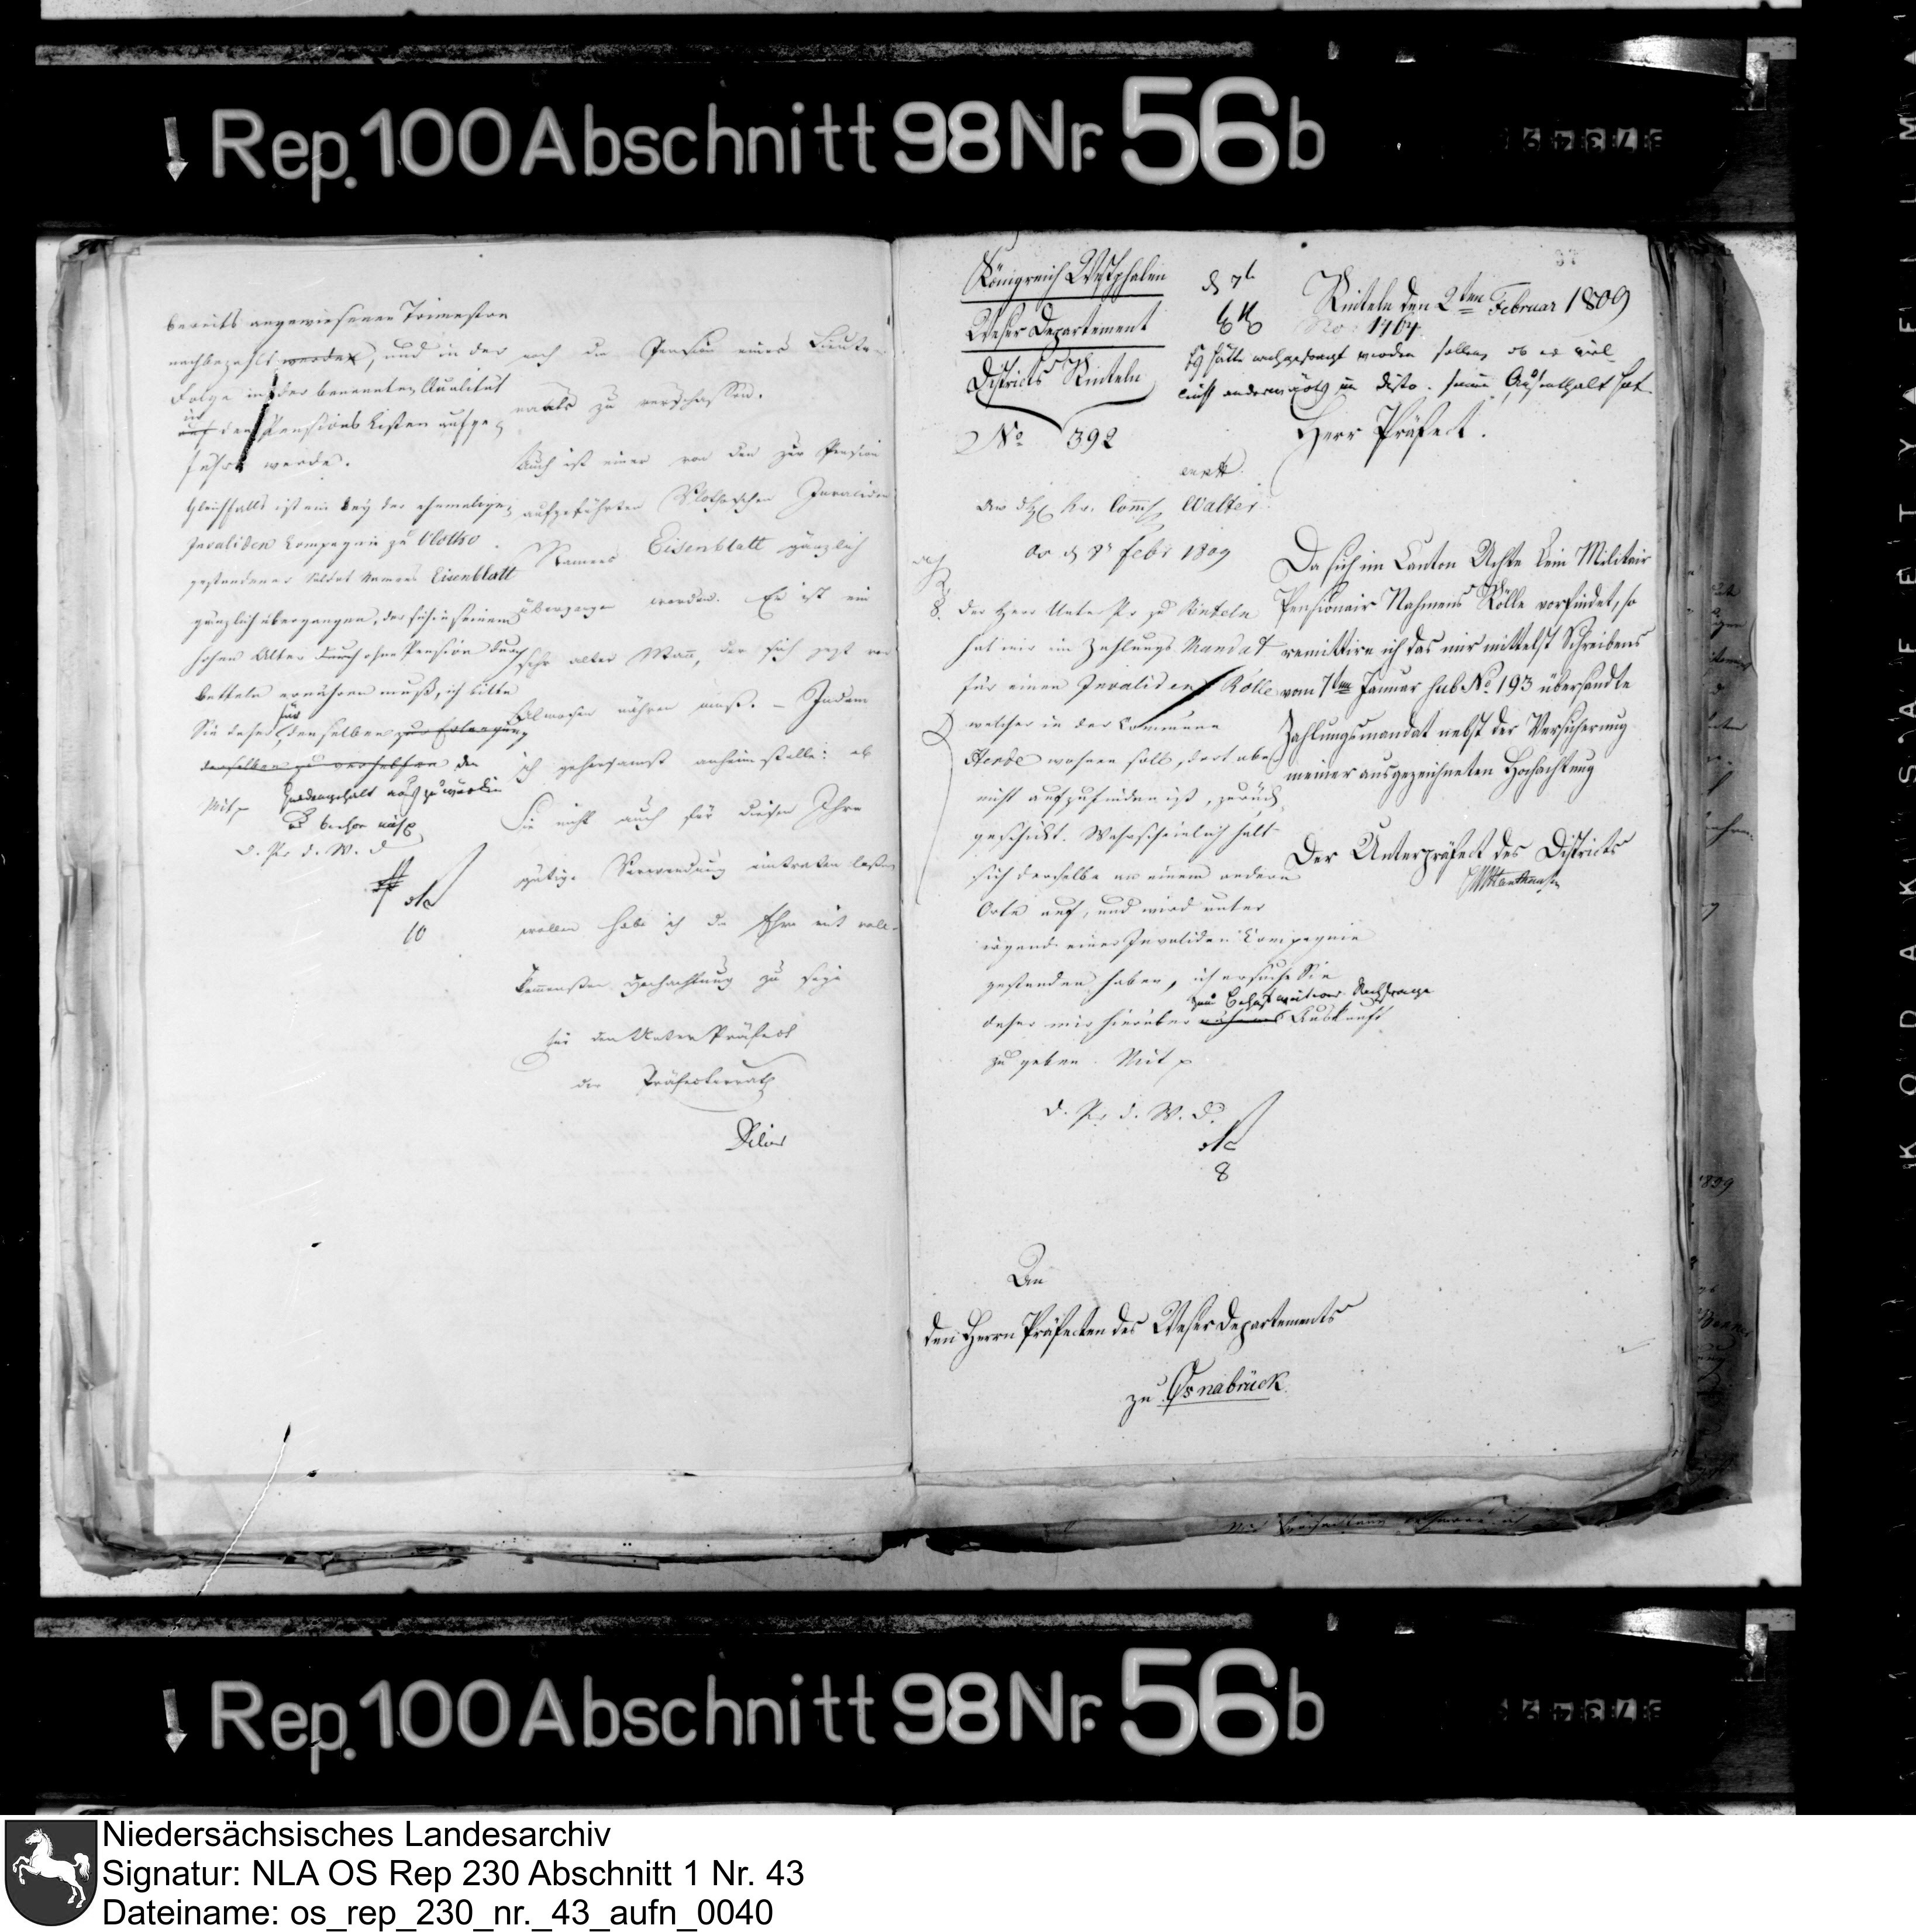 Rep. 100 Abschnitt 98 Nr. 56b
bereits angewiesenen Trimester
nachbezahlt werden, und in der
Folge in der benannten Qualität
in
auf den Pensions Listen aufge
führt werde.
Gleichfalls ist ein bey der ehemaligen
Invaliden Compagnie zu Vlotho
gestandener Soldat Namens Eisenblatt
gänzlich übergangen, der sich in seinem
hohen Alter durch ohne Pension durch
betteln ernähren muß, ich bitte
für
Sie daher, denselben zur Erlangung
derselben zu verhelfen den
Gnadengehalt auch zu
Mit
D. Pr. d. W. D
10
noch die Pension eines Lieute-
nants zu verschaffen.
Auch ist einer von den zur Pension
aufgeführten Vlothoschen Invaliden
Namens Eisenblatt gänzlich
übergangen worden. Er ist ein
sehr alter Mann, der sich jezt von
Almosen nähren muß. – Indem
ich gehorsamst anheimstelle: ob
Sie nicht auch für diesen Ihre
gütige Verwendung eintreten lassen
wollen habe ich die Ehre mit voll-
kommenster Hochachtung zu seyn
für den Unter Präfect
der Präfecturrath
37
Königreich Westphalen
Weser Departement
Districts Rinteln
No 392
Rinteln den 2ten Februar 1809
No. 1464
Es hätte nachgefragt werden sollen, ob er viel-
leicht anderwärts im Distr. seinen Aufenthalt hat
Herr Präfect.
Walter
Os d 8t Febr 1809
8.
der Herr Unter Pr. zu Rinteln
hat mir ein Zahlungs Mandat
für einen Invaliden Rölle
welcher in der Commune
wohnen soll, dort aber
nicht aufzufinden ist, zurück
geschickt. Wahrscheinlich hält
sich derselbe an einem andern
Orte auf, und wird unter
irgend einer Invaliden Compagnie
gestanden haben, ich ersuche Sie
zum Behuf weiterer Nachfrage
daher mir hierüber Auskunft
zu geben. Mit
D. Pr. d. W. D.
8
Da sich im Canton Uchte kein Militair
Pensionair Nahmens Rölle vorfindet, so
remittire ich das mir mittelst Schreibens
vom 7ten Januar sub No 193 übersandte
Zahlungsmandat nebst der Versicherung
meiner ausgezeichneten Hochachtung
Der Unterpräfect des Districts
An
den Herrn Präfecten des Weser Departements
zu Osnabrück
Rep. 100 Abschnitt 98 Nr. 56b
KODAK SAFETY FILM
Niedersächsisches Landesarchiv
Signatur: NLA OS Rep 230 Abschnitt 1 Nr. 43
Dateiname: os_rep_230_nr._43_aufn_0040